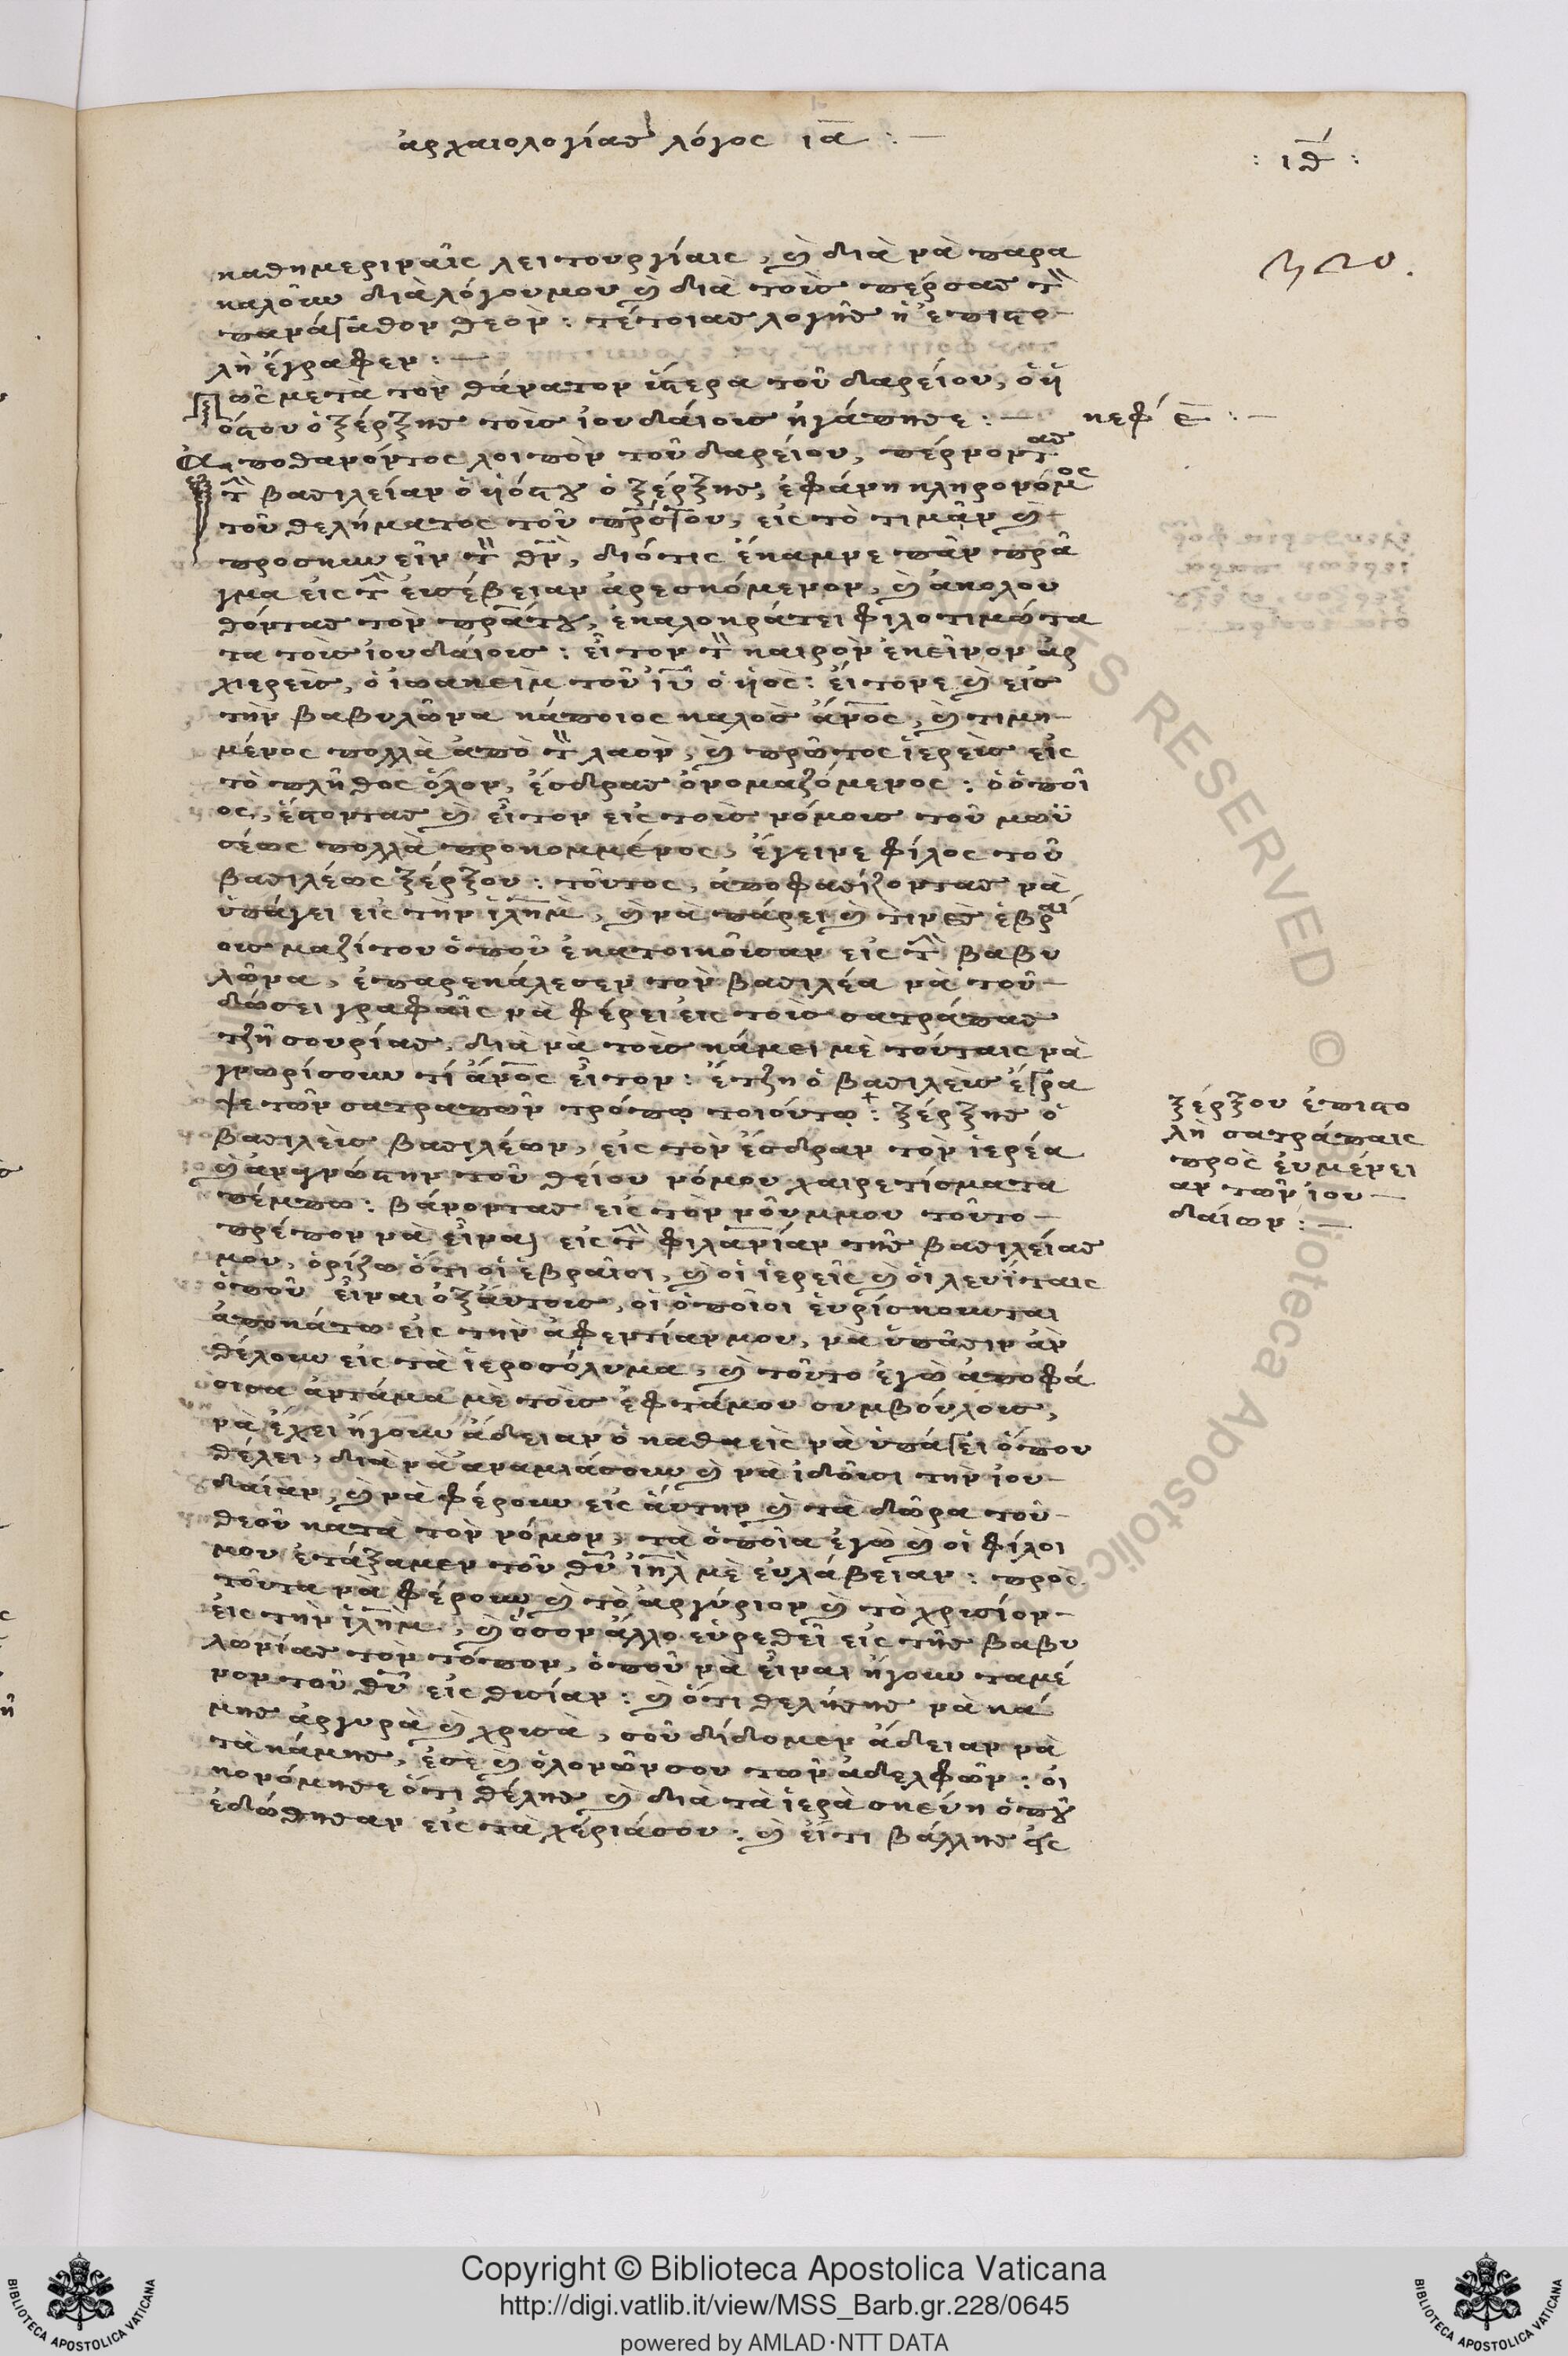 ἀρχαιολογίας λόγος ια :
: ιθ :
καθημεριναῖς λειτουργίαις, καὶ διὰ νὰ παρα
καλοῦν διὰ λόγου μου καὶ διὰ τοὺς πέρσας τὸν
πανάγαθον θεόν : τέτοιας λογῆς ἡ ἐπιστο
λὴ ἔγραφεν :
Πῶς μετὰ τὸν θάνατον ὕστερα τοῦ δαρείου, ὁ ὑ
όστου ὁ ξέρξης τοὺς ἰουδαίους ἠγάπησε :
κεφ ε :
Ἀποθανόντος λοιπὸν τοῦ δαρείου, πέρνοντας
τὴν βασιλείαν ὁ ὑόστου ὁ ξέρξης, ἐφάνη κληρονόμος
τοῦ θελήματος τοῦ πρστου, εἰς τὸ τιμᾶν καὶ
προσκυνεῖν τὸν θν, διότις ἔκαμνε πᾶν πρᾶ
γμα εἰς τὴν εὐσέβειαν ἀρεσκόμενον, καὶ ἀκολου
θόντας τὸν πρατου, ἐκαλοκράτει φιλοτιμώτα
τα τοὺς ἰουδαίους : εἶτον τὸν καιρὸν ἐκεῖνον ἀρ
χιερεὺς, ὁ ἰωακεὶμ τοῦ ἰυ ὁ ὑὸς : εἴτονε καὶ εἰς
τὴν βαβυλῶνα κάποιος καλὸς ἄνος, καὶ τιμη
μένος πολλὰ ἀπὸ τὸν λαὸν, καὶ πρῶτος ἱερεὺς εἰς
τὸ πλῆθος ὅλον, ἔσδρας ὀνομαζόμενος : ὁ ὁποῖ
ος, ἔστοντας καὶ εἶτον εἰς τοὺς νόμους τοῦ μωϋ
σέως πολλὰ προκομμένος, ἔγεινε φίλος τοῦ
βασιλέως ξέρξου : τοῦτος, ἀποφασίζοντας νὰ
ὑπάγει εἰς τὴν ἱλημ, καὶ νὰ πάρει καὶ τινὲς ἑβραί
ους μαζί του ὁποῦ ἐκατοικοῦσαν εἰς τὴν βαβυ
λῶνα, ἐπαρεκάλεσεν τὸν βασιλέα νὰ τοῦ
δώσει γραφαῖς νὰ φέρει εἰς τοὺς σατράπας
τζῆ συρίας, διὰ νὰ τοὺς κάμει μὲ τούταις νὰ
γνωρίσουν τί ἄνος εἶτον : ἔτζη ὁ βασιλεὺς ἔγρα
ψε τῶν σατραπῶν τρόπῳ τοιούτῳ : ξέρξης ὁ
βασιλεὺς βασιλέων, εἰς τὸν ἔσδραν τὸν ἱερέα
καὶ ἀναγνώστην τοῦ θείου νόμου χαιρετίσματα
πέμπω : βάνοντας εἰς τὸν νοῦν μου τοῦτο
πρέπον νὰ εἶναι εἰς τὴν φιλανίαν τῆς βασιλείας
μου, ὁρίζω ὅτι οἱ ἑβραῖοι, καὶ οἱ ἱερεῖς καὶ οἱ λευΐταις
ὁποῦ εἶναι ὀξαύτους, οἱ ὁποῖοι εὑρίσκουνται
ἀποκάτω εἰς τὴν ἀφεντίαν μου, νὰ ὑπᾶσιν ἂν
θέλουν εἰς τὰ ἱεροσόλυμα, καὶ τοῦτο ἐγὼ ἀποφά
σισα ἀντάμα μὲ τοὺς ἐφτά μου συμβούλους,
νὰ ἔχει ἤγουν ἄδειαν ὁ καθαεὶς νὰ ὑπάγει ὅπου
θέλει, διὰ νὰ ἀναμιάσουν καὶ νὰ ἰδοῦσι τὴν ἰου
δαίαν, καὶ νὰ φέρουν εἰς αὐτὴν καὶ τὰ δῶρα τοῦ
θεοῦ κατὰ τὸν νόμον, τὰ ὁποῖα ἐγὼ καὶ οἱ φίλοι
μου ἐτάξαμεν τοῦ θυ ἰηλ μὲ εὐλάβειαν : πρὸς
τοῦτα νὰ φέρουν καὶ τὸ ἀργύριον καὶ τὸ χρυσίον
εἰς τὴν ἱλημ, καὶ ὅσον ἄλλο εὑρεθεῖ εἰς τῆς βαβυ
λωνίας τὸν τόπον, ὁποῦ νὰ εἶναι ἤγουν ταμέ
νον τοῦ θυ εἰς θυσίαν : καὶ ὅτι θελήσης νὰ κά
μης ἀργυρὰ καὶ χρυσὰ, σοῦ δίδομεν ἄδειαν νὰ
τὰ κάμης, ἐσὲ καὶ ὁλονῶν σου τῶν ἀδελφῶν : οἱ
κονόμησε ὅτι θέλης καὶ διὰ τὰ ἱερὰ σκεύη ὁποῦ
ἐδώθησαν εἰς τὰ χέριά σου : καὶ εἴτι βάλλης
ξέρξου ἐπιστο
λὴ σατράπαις
πρὸς εὐμένει
αν τῶν ἰου
δαίων :
ALL RIGHTS RESERVED © Biblioteca Apostolica Vaticana
Copyright © Biblioteca Apostolica Vaticana
http://digi.vatlib.it/view/MSS_Barb.gr.228/0645
powered by AMLAD·NTT DATA
BIBLIOTECA APOSTOLICA VATICANA
BIBLIOTECA APOSTOLICA VATICANA